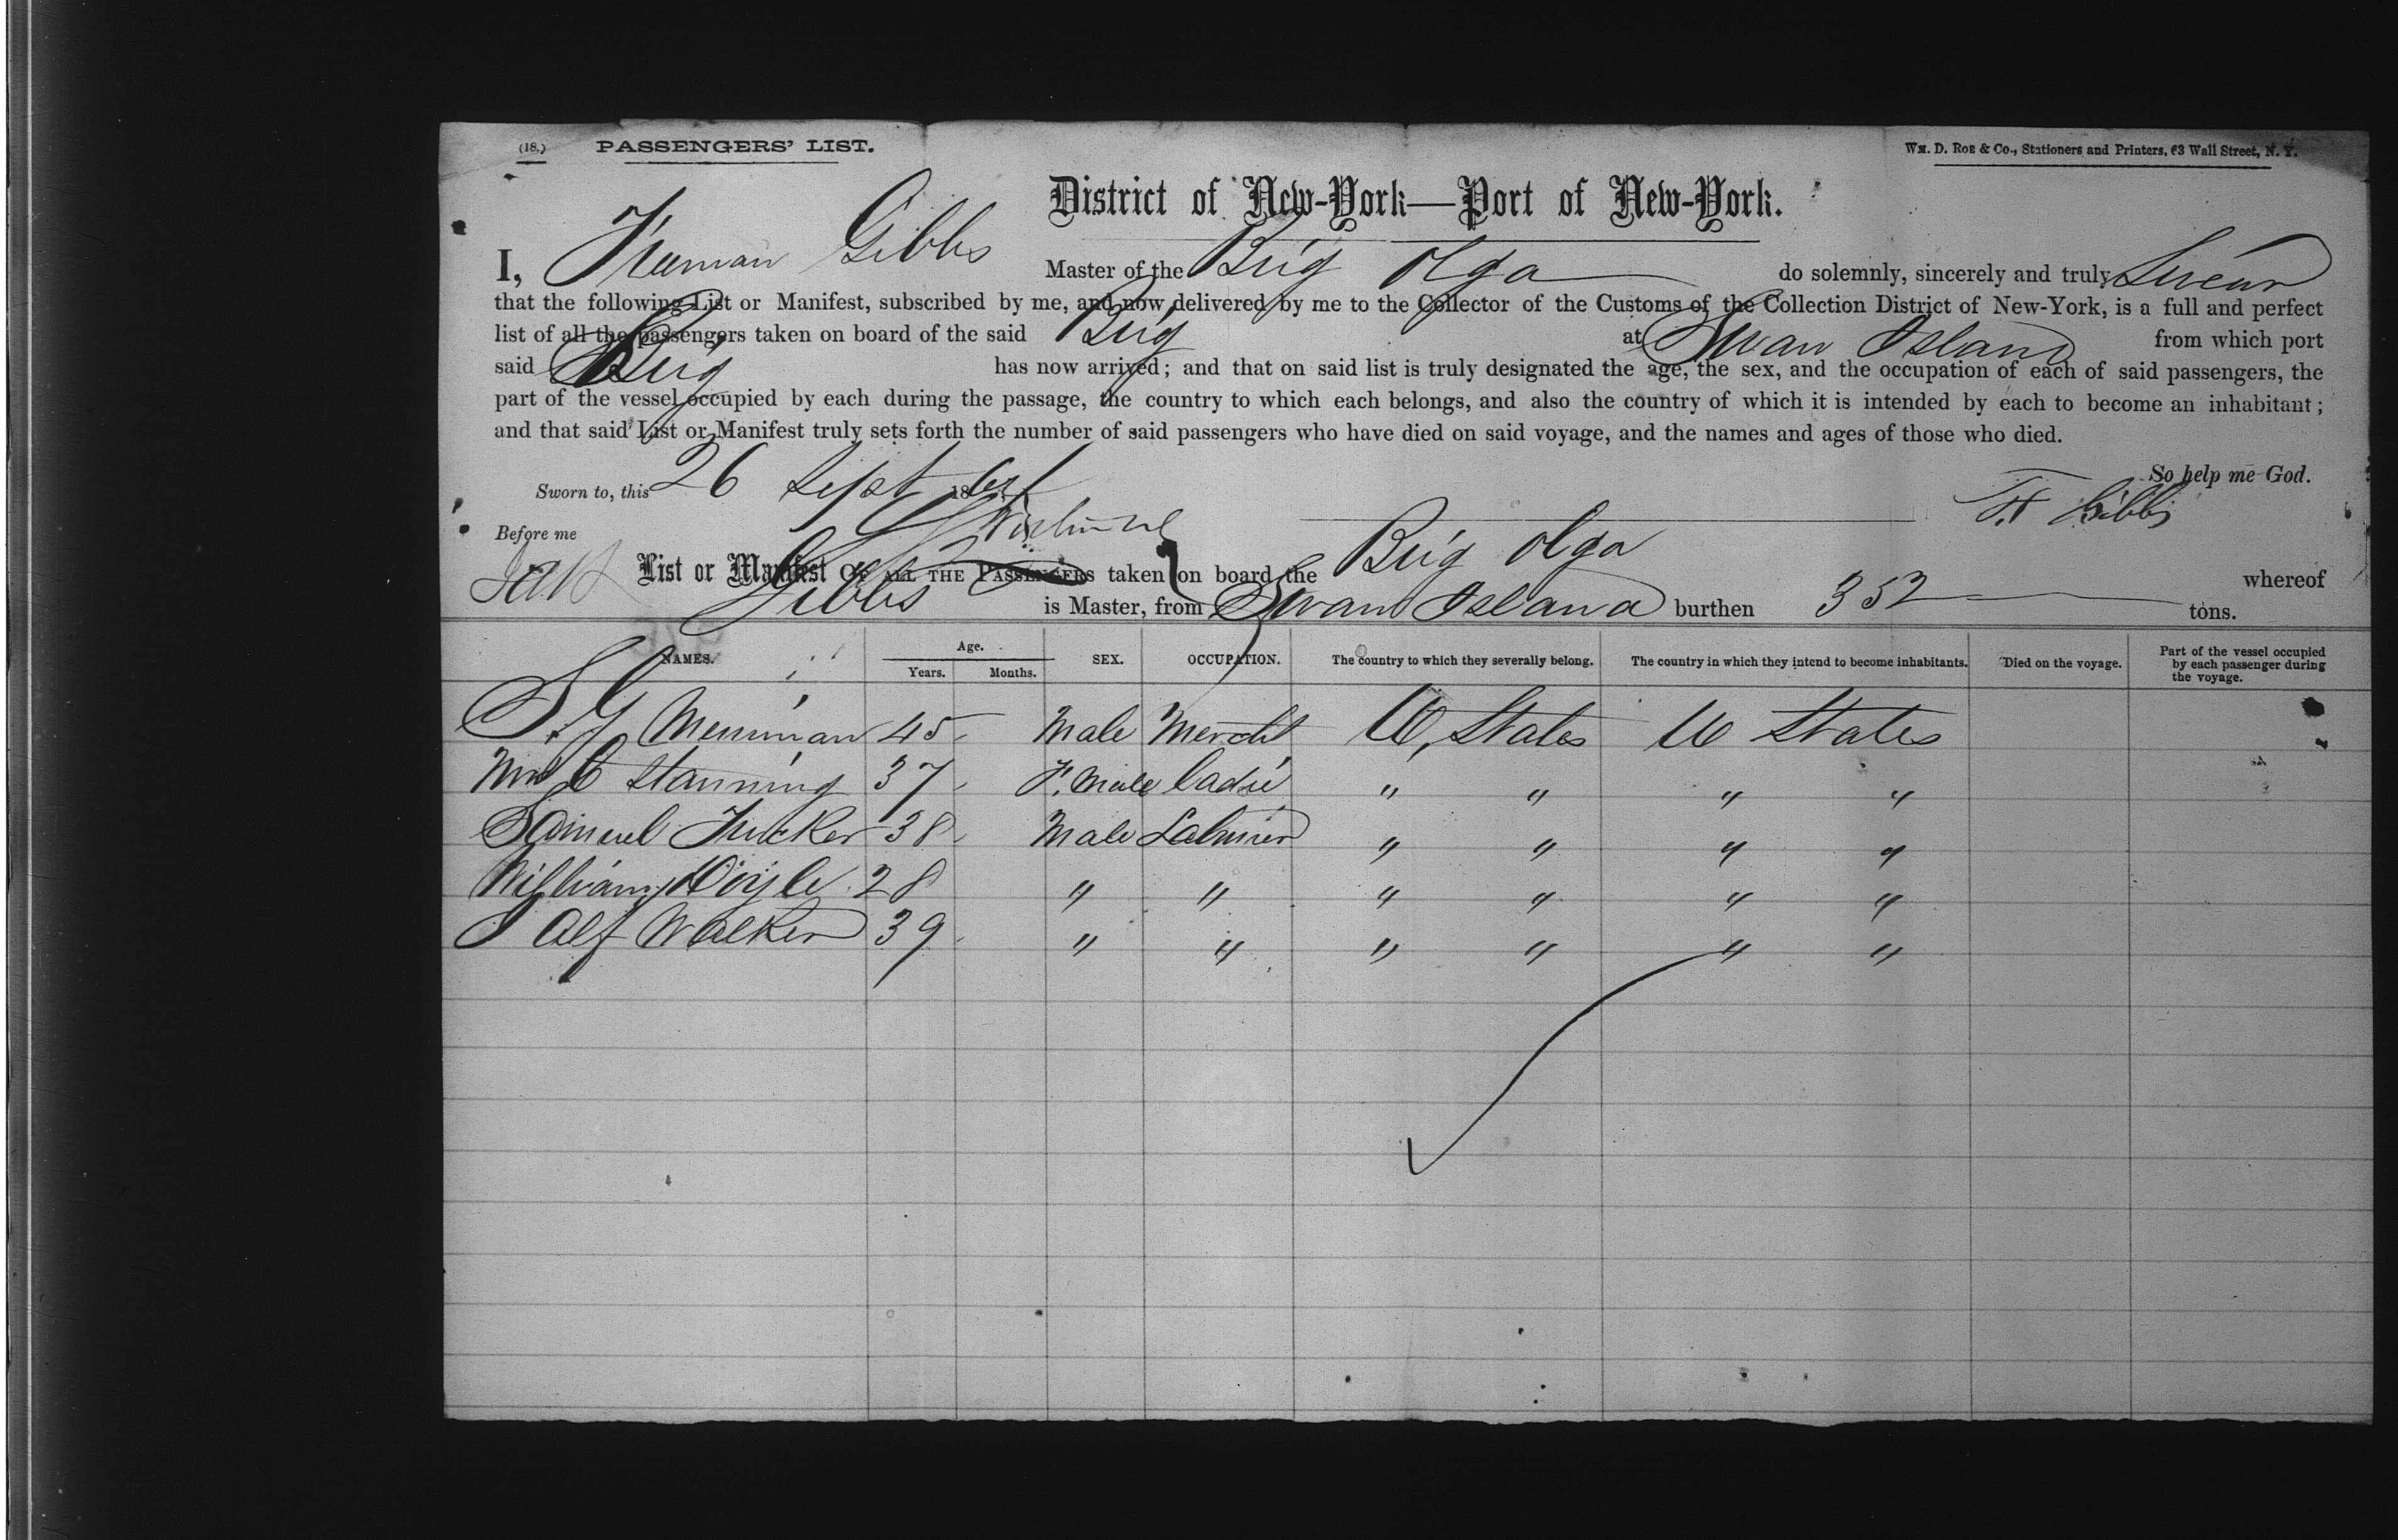 (18.) PASSENGERS' LIST.
Wm. D. Roe & Co., Stationers and Printers, 63 Wall Street, N. Y.
District of New-York—Port of New-York.
I, Freeman Gibbs Master of the Brig Olga do solemnly, sincerely and truly Swear
that the following List or Manifest, subscribed by me, and now delivered by me to the Collector of the Customs of the Collection District of New-York, is a full and perfect
list of all the passengers taken on board of the said Brig at Swan Island from which port
said Brig has now arrived; and that on said list is truly designated the age, the sex, and the occupation of each of said passengers, the
part of the vessel occupied by each during the passage, the country to which each belongs, and also the country of which it is intended by each to become an inhabitant;
and that said List or Manifest truly sets forth the number of said passengers who have died on said voyage, and the names and ages of those who died.
So help me God.
Sworn to, this 26 Sept 18
F Gibbs
Before me
List or Manifest OF ALL THE PASSENGERS taken on board the Brig Olga whereof
Gibbs is Master, from Swan Island burthen 352 tons.
NAMES. Age. Years. Months. SEX. OCCUPATION. The country to which they severally belong. The country in which they intend to become inhabitants. Died on the voyage. Part of the vessel occupied by each passenger during the voyage.
S. G Merriman 45 Male Mercht U. States U States
Mrs C Stanning 37 F. Male Ladie " " " "
Samuel Tucker 38 Male Labourer " " " "
William Doyle 28 " " " " " "
Alf Walker 39 " " " " " "